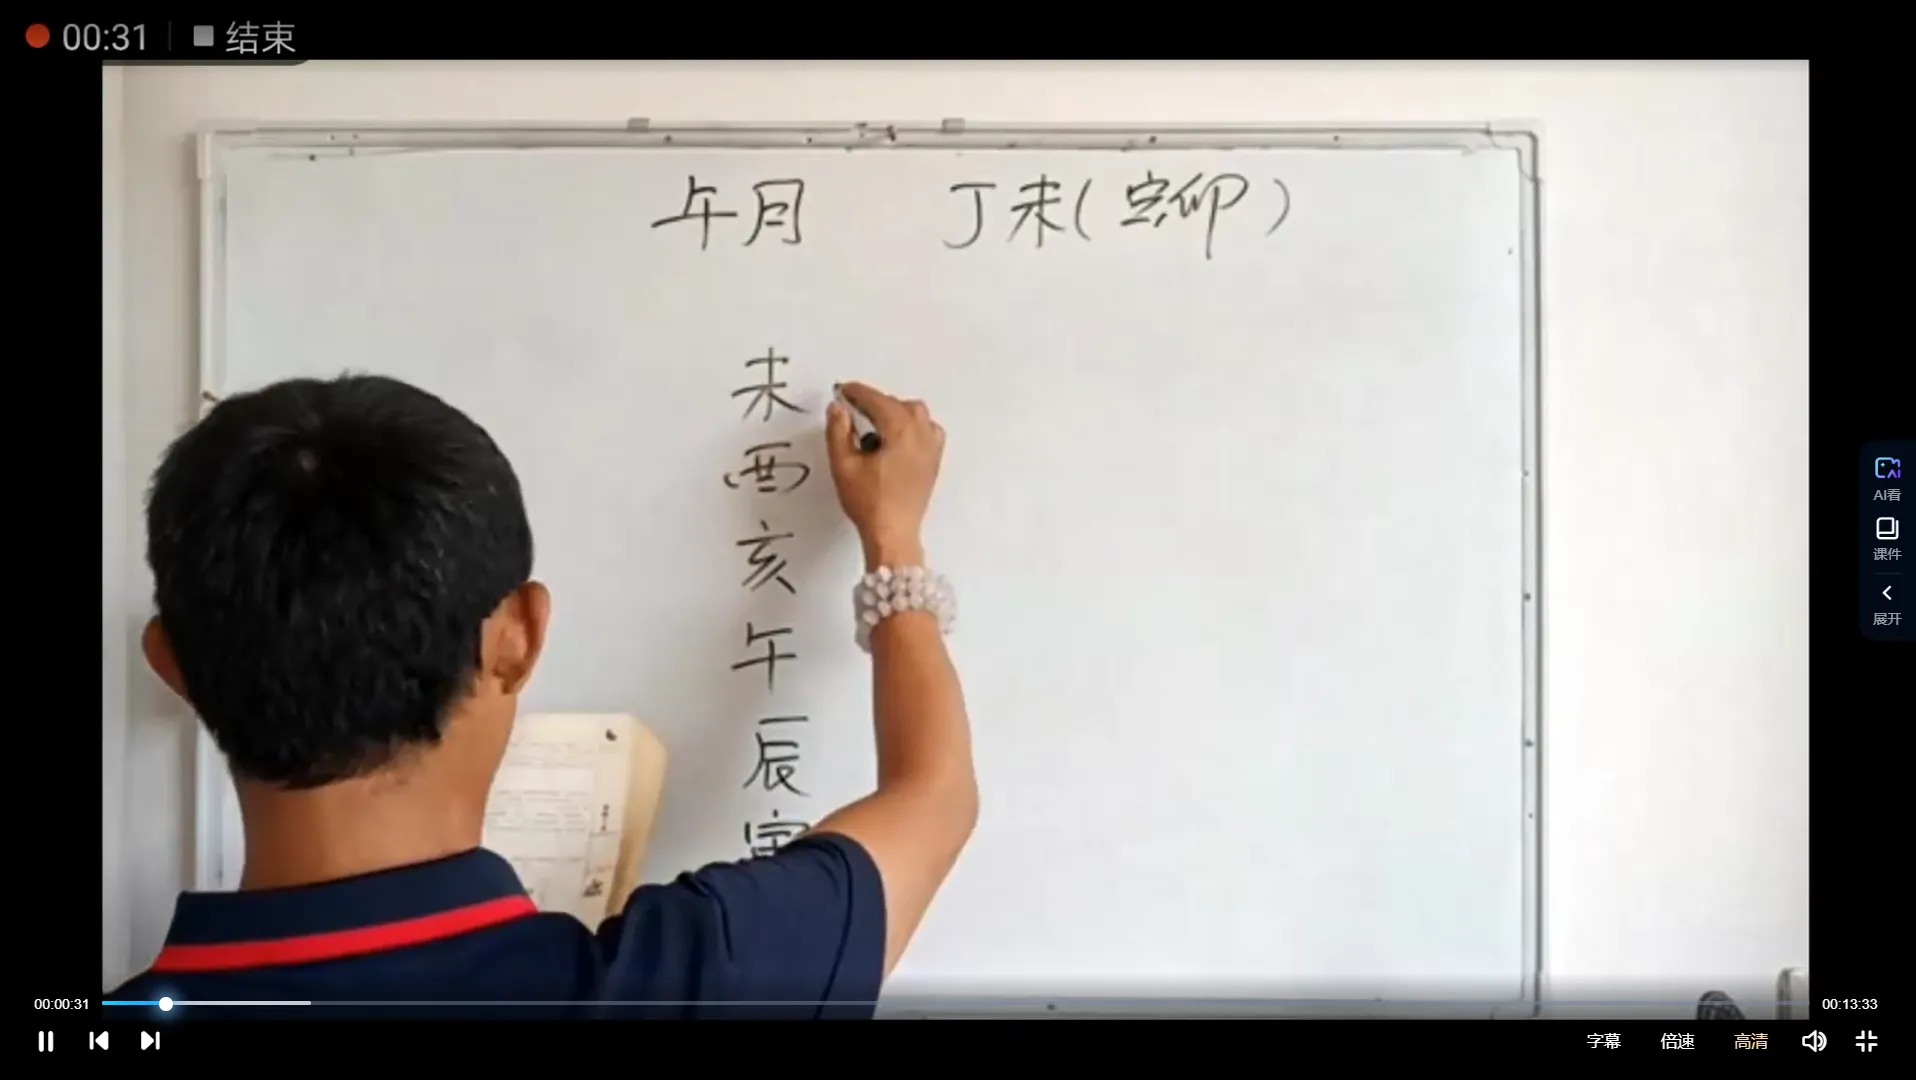 00:31 结束
午月 丁未(空卯)
未
酉
亥
午
辰
寅
AI看
课件
展开
00:00:31
00:13:33
字幕 倍速 高清